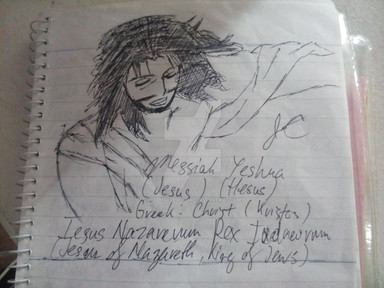 JC
Messiah Yeshua
(Jesus) (Hesus)
Greek: Christ (Kristos)
Iesus Nazarenum Rex Iudaeorum
(Jesus of Nazareth, King of Jews)